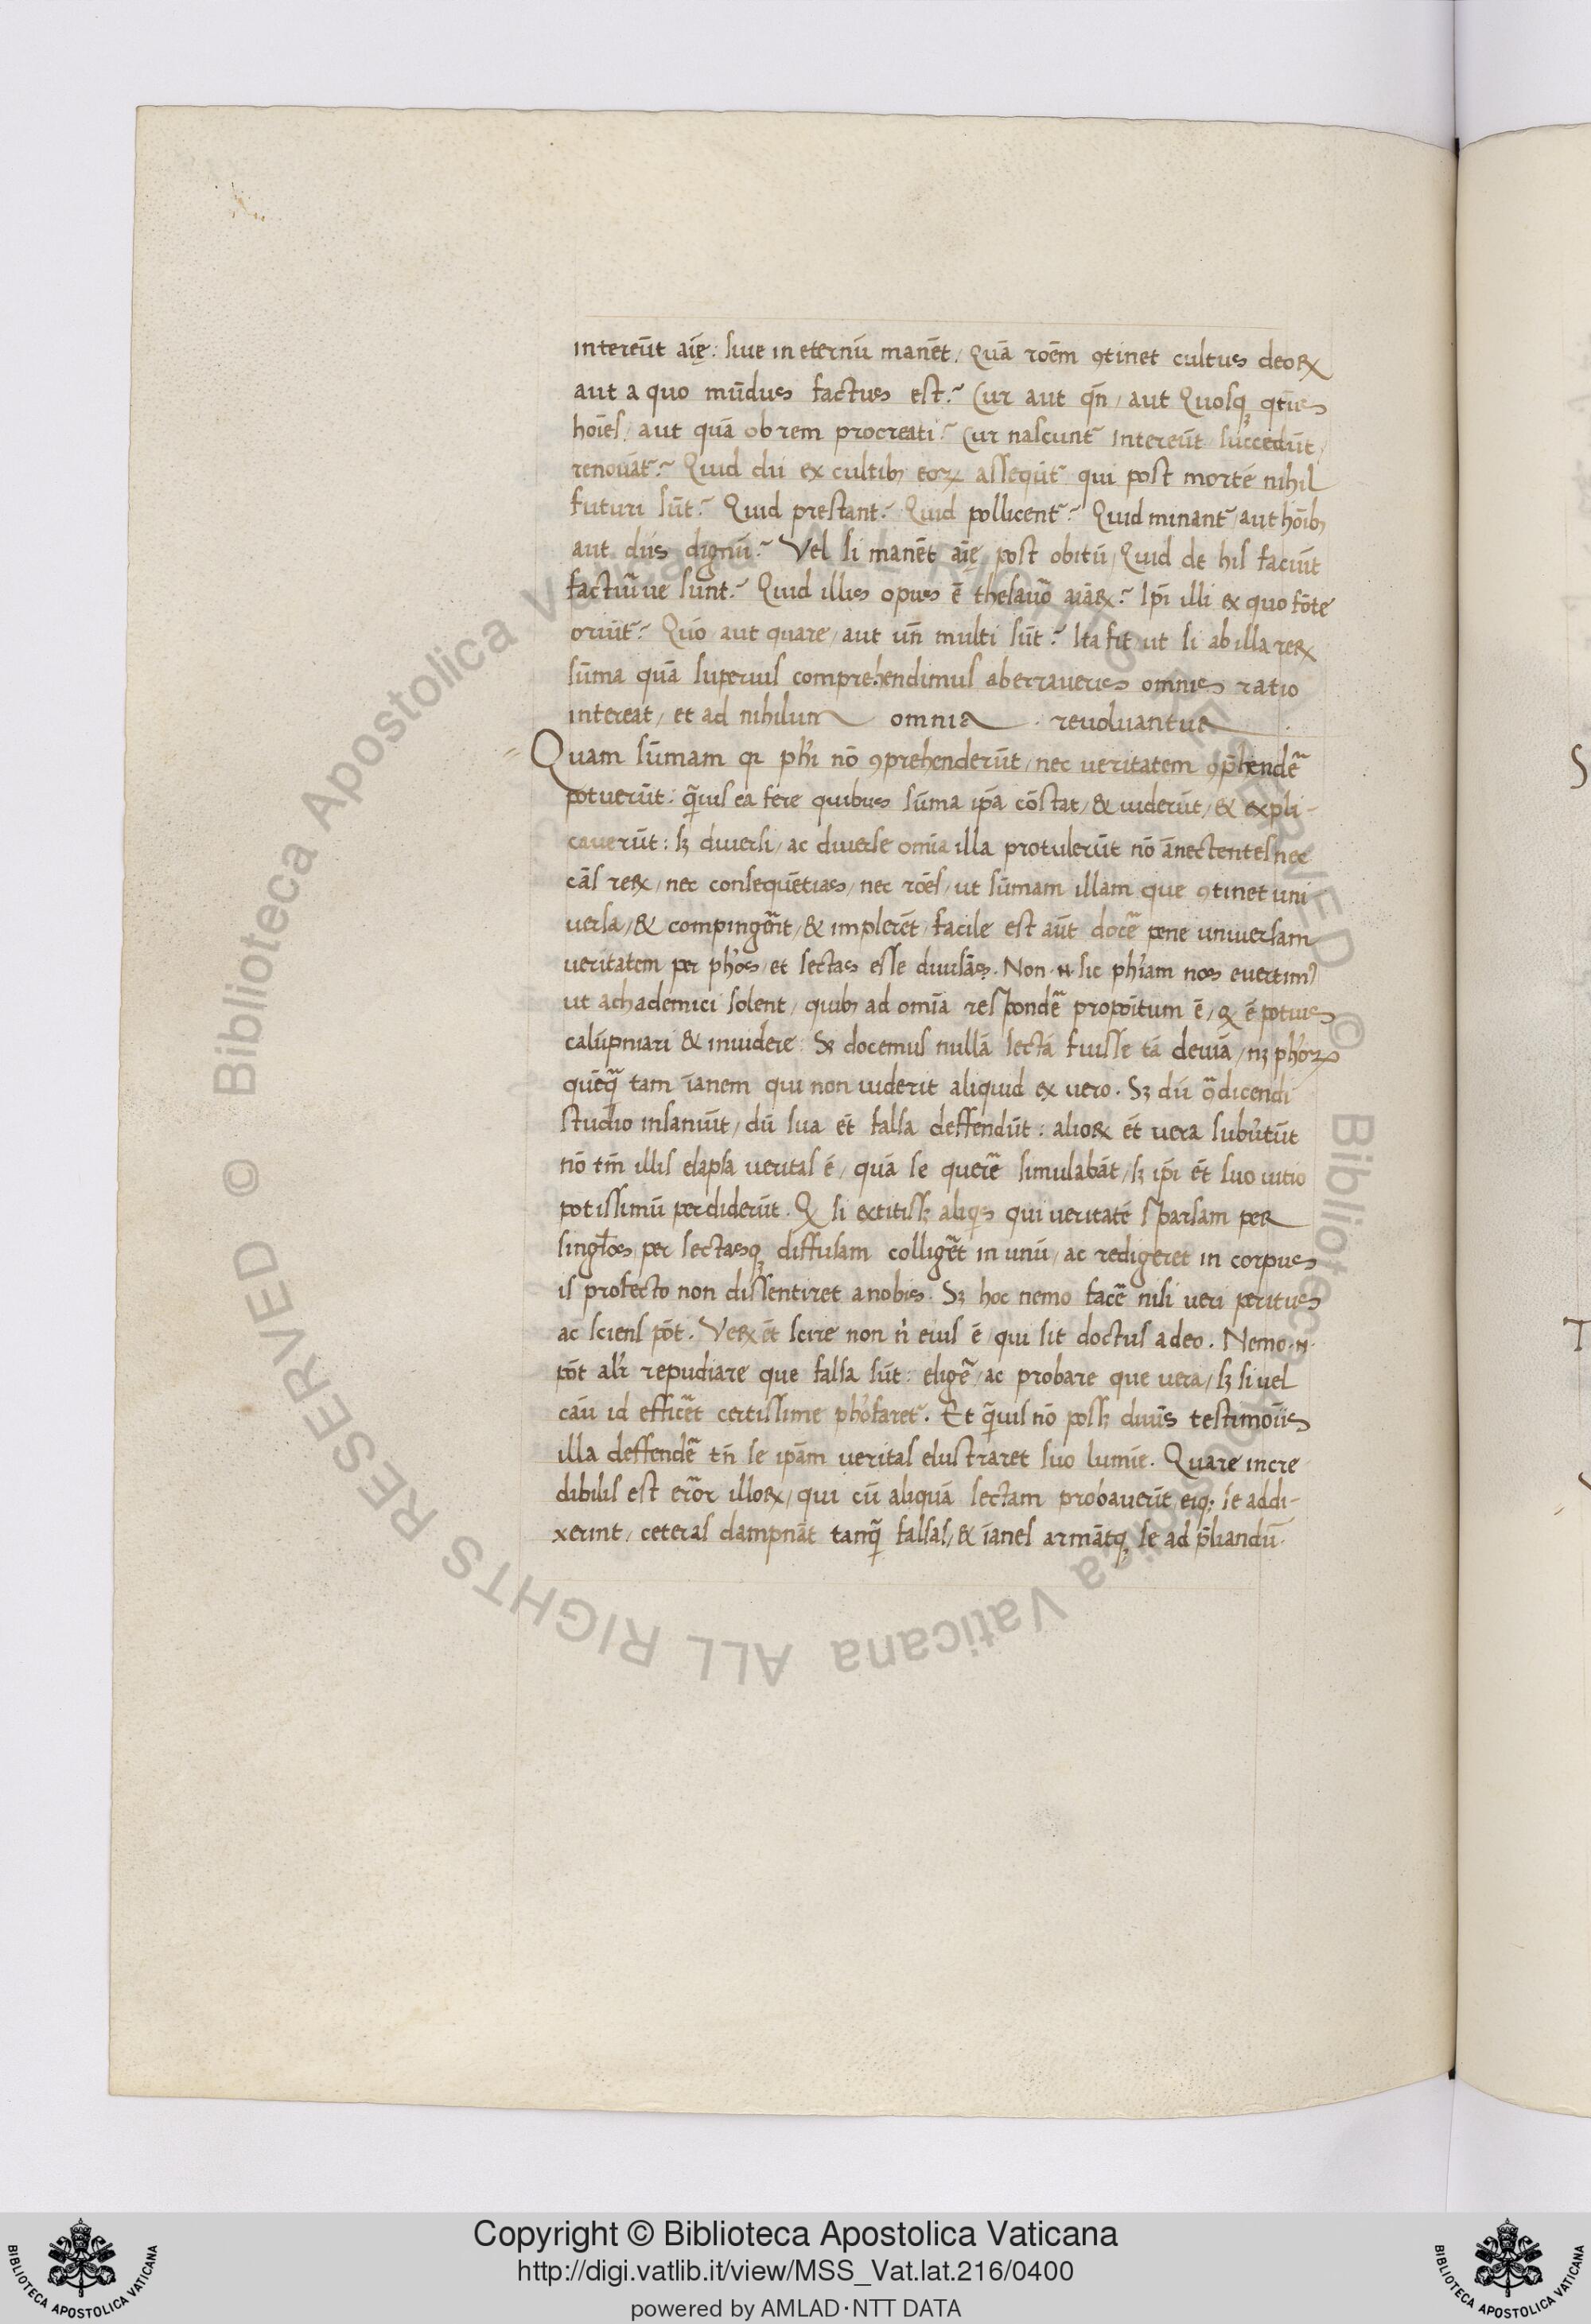 intereūt aīę: siue in eternū manēt / Quā roēm ꝯtinet cultus deoꝝ
aut a quo mūdus factus est? Cur aut qn̄ / aut Quosqꝫ qtius
hoīes / aut quā ob rem procreati? Cur nascunt᷑ intereūt succedūt /
renouāt᷑? Quid dii ex cultibꝫ eoꝝ asseqūt᷑ qui post mortē nihil
futuri sūt? Quid prestant? Quid pollicent᷑? Quid minant᷑ / aut hoībꝫ
aut diis dignū? Vel si manēt aīę post obitū / Quid de his faciūt
factiūue sunt? Quid illis opus ē thesauro aīaꝝ? Ipī illi ex quo fōte
oriūt᷑? Quō aut quare / aut un̄ multi sūt? Ita fit ut si ab illa reꝝ
sūma quā superius comprehendimus aberraueris omnis ratio
intereat / et ad nihilum omnia reuoluantur
Quam sūmam qꝛ phī nō ꝯprehenderūt / nec ueritatem ꝯp̄hendē
potuerūt: q̄uis ea fere quibus sūma ipā cōstat / & uiderūt / & expli-
cauerūt: sꝫ diuersi / ac diuerse omīa illa protulerūt nō ānectentes nec
cās reꝝ / nec consequētias / nec roēs / ut sūmam illam que ꝯtinet uni
uersa / & compingēnt / & implerēt / facile est aūt docē pene uniuersam
ueritatem per phos / et sectas esse diuisā. Non .n. sic phiam nos euertimꝰ
ut achademici solent / quibꝫ ad omīa respondē propoītum ē / qꝫ ē potius
calūpniari & inuidere: Sꝫ docemus nullā sectā fuisse tā deuiā / nꝫ phoꝝ
quēq̄ tam īanem qui non uiderit aliquid ex uero. Sꝫ dū ꝯ̄dicendi
studio insaniūt / dū sua ēt falsa deffendūt: alioꝝ ēt uera subūtūt
nō tm̄ illis elapsa ueritas ē / quā se querē simulabāt / sꝫ ipī ēt suo uitio
potissimū perdiderūt. Qꝫ si extitissꝫ aliqis qui ueritatē sparsam per
singlos / per sectasqꝫ diffusam colligēt in unū / ac redigeret in corpus
is profecto non dissentiret a nobis. Sꝫ hoc nemo facē nisi ueri peritus
ac sciens pōt. Veꝝ ēt scire non nͥ eius ē / qui sit doctus a deo. Nemo .n.
pōt alͥr repudiare que falsa sūt: eligē / ac probare que uera / sꝫ si uel
cāu id efficēt certissime phōfaret᷑. Et q̄uis nō possꝫ diuīs testimoīis
illa deffendē tn̄ se ipām ueritas elustraret suo lumīe. Quare incre
dibilis est erōr illoꝝ / qui cū aliquā sectam probauerīt eiqꝫ se addi-
xerint / ceteras dampnāt tamq̄ falsas / & īanes armātqꝫ se ad p̄liandū.
Copyright © Biblioteca Apostolica Vaticana
http://digi.vatlib.it/view/MSS_Vat.lat.216/0400
powered by AMLAD·NTT DATA
BIBLIOTECA APOSTOLICA VATICANA
BIBLIOTECA APOSTOLICA VATICANA
© Biblioteca Apostolica Vaticana ALL RIGHTS RESERVED
© Biblioteca Apostolica Vaticana ALL RIGHTS RESERVED